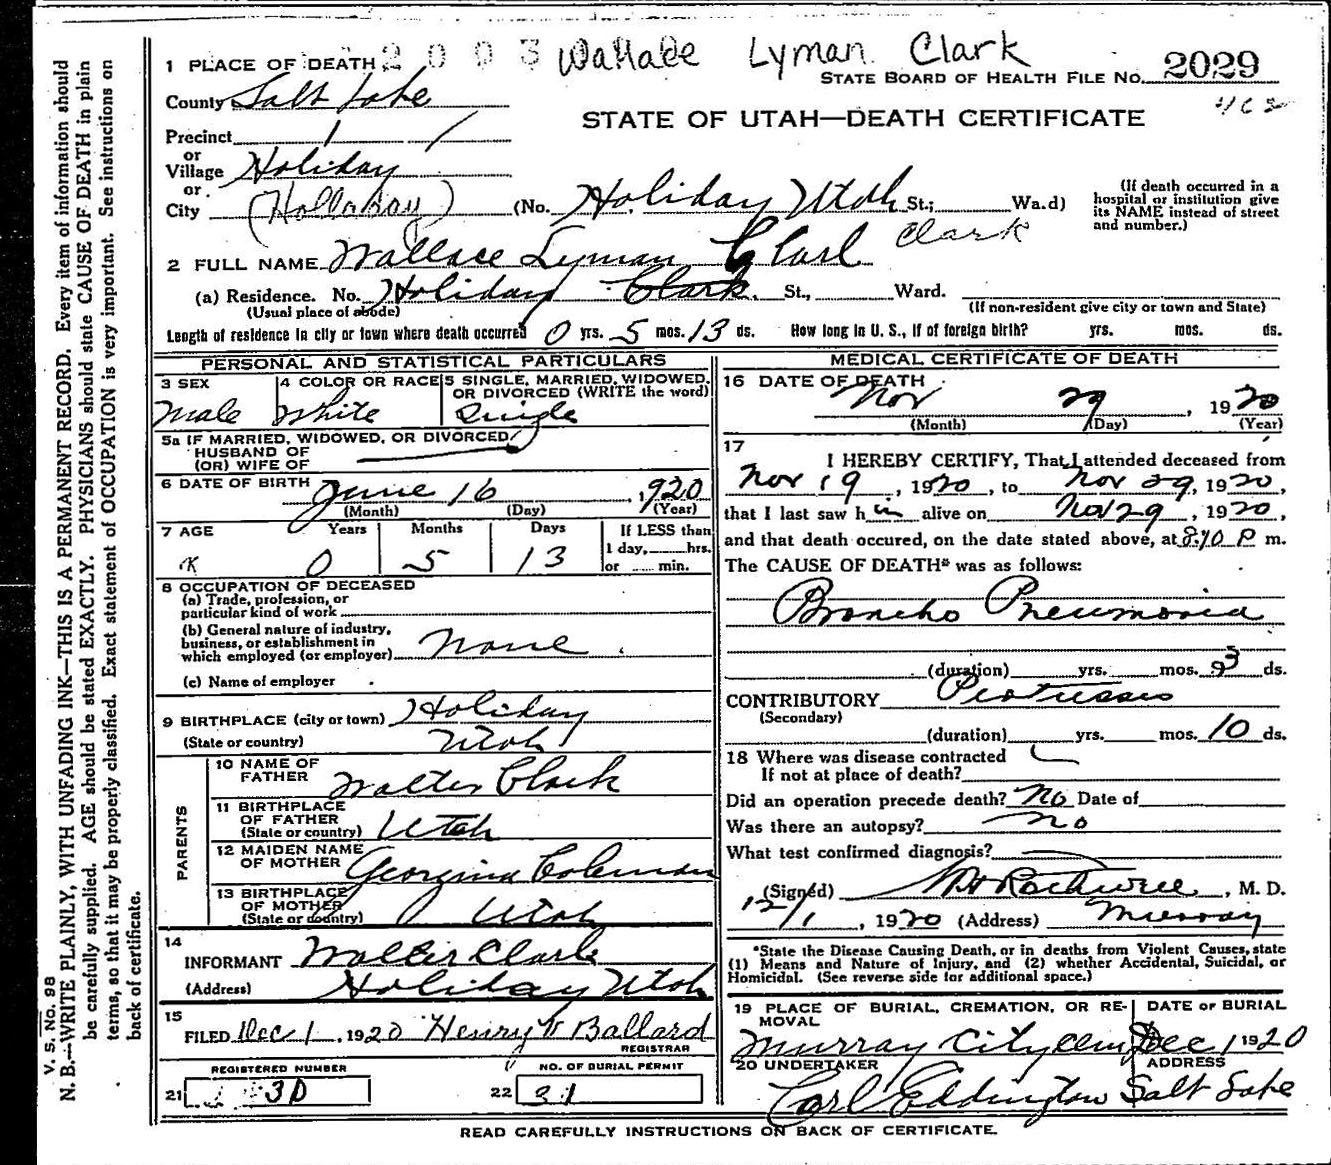 2003 Wallace Lyman Clark
1 PLACE OF DEATH
STATE BOARD OF HEALTH FILE NO. 2029
County Salt Lake
STATE OF UTAH—DEATH CERTIFICATE
Precinct 1
or
Village Holiday
or
City (Holladay) (No. Holiday Utah St.; Wa.d)
(If death occurred in a hospital or institution give its NAME instead of street and number.)
2 FULL NAME Wallace Lyman Clark Clark
(a) Residence. No. Holiday Clark. St., Ward.
(Usual place of abode) (If non-resident give city or town and State)
Length of residence in city or town where death occurred 0 yrs. 5 mos. 13 ds. How long in U. S., if of foreign birth? yrs. mos. ds.
PERSONAL AND STATISTICAL PARTICULARS
3 SEX Male
4 COLOR OR RACE White
5 SINGLE, MARRIED, WIDOWED, OR DIVORCED (WRITE the word) Single
5a IF MARRIED, WIDOWED, OR DIVORCED
HUSBAND OF
(OR) WIFE OF
6 DATE OF BIRTH June 16, 1920
(Month) (Day) (Year)
7 AGE Years Months Days If LESS than
0 5 13 1 day, hrs.
or min.
8 OCCUPATION OF DECEASED
(a) Trade, profession, or
particular kind of work
(b) General nature of industry,
business, or establishment in
which employed (or employer) None
(c) Name of employer
9 BIRTHPLACE (city or town) Holiday
(State or country) Utah
PARENTS
10 NAME OF
FATHER Walter Clark
11 BIRTHPLACE
OF FATHER
(State or country) Utah
12 MAIDEN NAME
OF MOTHER Georgina Coleman
13 BIRTHPLACE
OF MOTHER
(State or country) Utah
14
INFORMANT Walter Clark
(Address) Holiday Utah
15
FILED Dec 1, 1920 Henry V Ballard
REGISTRAR
REGISTERED NUMBER NO. OF BURIAL PERMIT
21 30 22 31
MEDICAL CERTIFICATE OF DEATH
16 DATE OF DEATH
Nov 29, 1920
(Month) (Day) (Year)
17
I HEREBY CERTIFY, That I attended deceased from
Nov 19, 1920, to Nov 29, 1920,
that I last saw him alive on Nov 29, 1920,
and that death occured, on the date stated above, at 8:10 P m.
The CAUSE OF DEATH* was as follows:
Broncho Pneumonia
(duration) yrs. mos. 3 ds.
CONTRIBUTORY Pertussis
(Secondary)
(duration) yrs. mos. 10 ds.
18 Where was disease contracted
If not at place of death?
Did an operation precede death? No Date of
Was there an autopsy? no
What test confirmed diagnosis?
(Signed) Rothwell, M. D.
12/1, 1920 (Address) Murray
*State the Disease Causing Death, or in deaths from Violent Causes, state
(1) Means and Nature of Injury, and (2) whether Accidental, Suicidal, or
Homicidal. (See reverse side for additional space.)
19 PLACE OF BURIAL, CREMATION, OR RE-
MOVAL
DATE OF BURIAL
Murray City Cem Dec 1 1920
20 UNDERTAKER ADDRESS
Carl Eddington Salt Lake
READ CAREFULLY INSTRUCTIONS ON BACK OF CERTIFICATE.
V. S. No. 98
N. B.—WRITE PLAINLY, WITH UNFADING INK—THIS IS A PERMANENT RECORD. Every item of information should
be carefully supplied. AGE should be stated EXACTLY. PHYSICIANS should state CAUSE OF DEATH in plain
terms, so that it may be properly classified. Exact statement of OCCUPATION is very important. See instructions on
back of certificate.